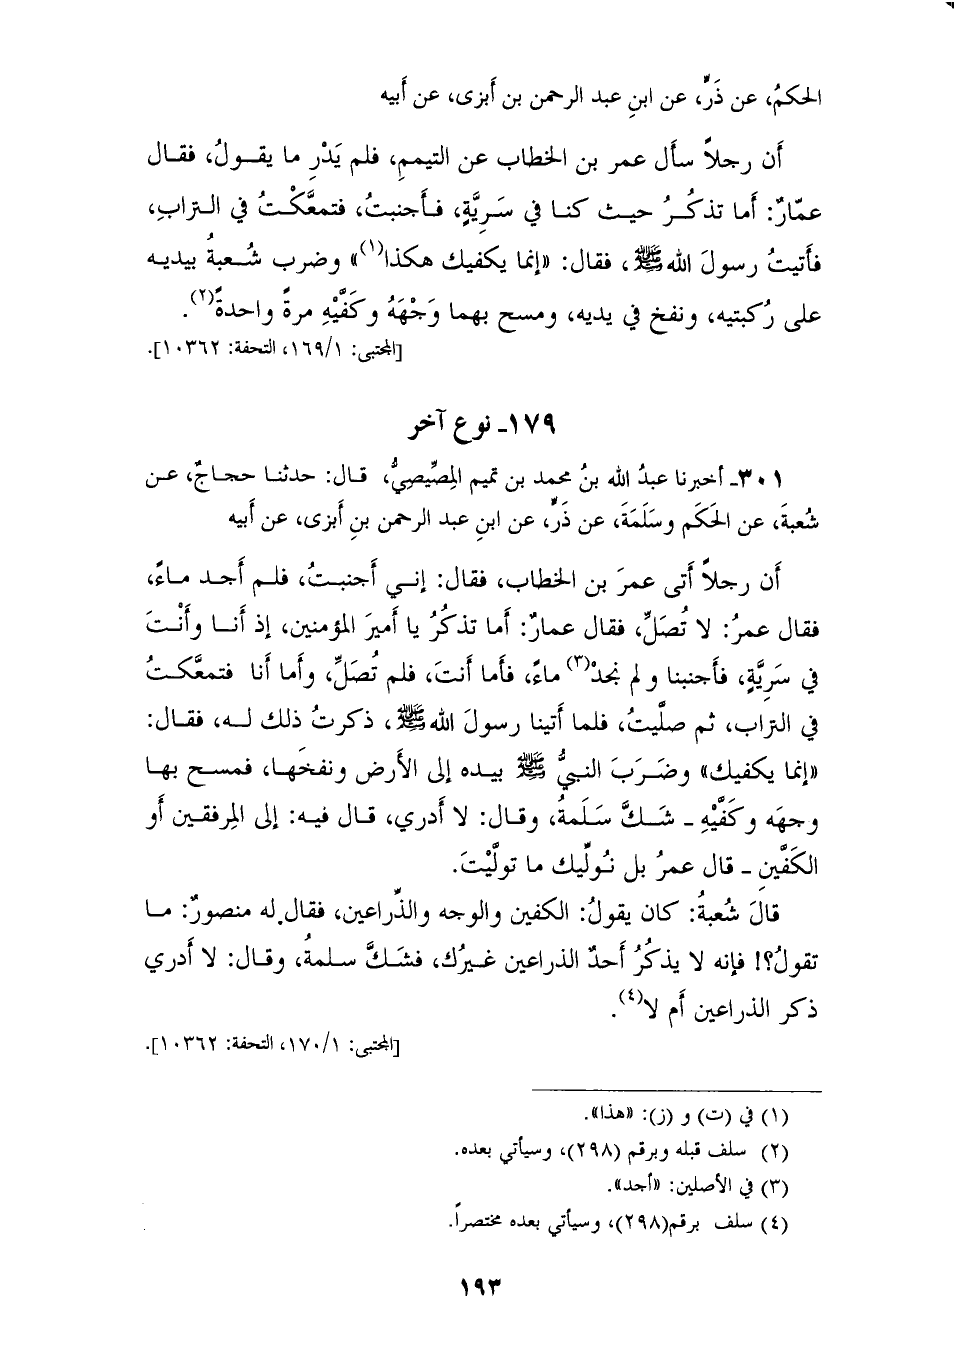 الحكمُ، عن ذَرٍّ، عن ابنِ عبد الرحمن بن أَبزى، عن أَبيه
أَن رجلاً سأَل عمر بن الخطاب عن التيممِ، فلم يَدْرِ ما يقولُ، فقال
عمّارٌ: أَما تذكُرُ حيث كنا في سَرِيَّةٍ، فأَجنبتُ، فتمعَّكْتُ في الترابِ،
فأَتيتُ رسولَ الله ﷺ، فقال: «إنما يكفيك هكذا(١)» وضرب شُعبةُ بيديه
على رُكبتيه، ونفخ في يديه، ومسح بهما وَجْهَهُ وكَفَّيْهِ مرةً واحدةً(٢).
[المجتبى: ١/١٦٩، التحفة: ١٠٣٦٢].
١٧٩- نوع آخر
٣٠١- أخبرنا عبدُ الله بنُ محمد بن تميم المِصِّيصِيُّ، قال: حدثنا حجاجٌ، عن
شُعبةَ، عن الحَكَم وسَلَمَةَ، عن ذَرٍّ، عن ابنِ عبد الرحمن بنِ أَبزى، عن أَبيه
أَن رجلاً أَتى عمرَ بن الخطاب، فقال: إني أَجنبتُ، فلم أَجد ماءً،
فقال عمرُ: لا تُصَلِّ، فقال عمارٌ: أَما تذكُرُ يا أَميرَ المؤمنين، إذ أَنا وأَنْتَ
في سَرِيَّةٍ، فأَجنبنا ولم نجدْ(٣) ماءً، فأَما أَنتَ، فلم تُصَلِّ، وأَما أَنا فتمعَّكتُ
في التراب، ثم صلَّيتُ، فلما أَتينا رسولَ الله ﷺ، ذكرتُ ذلك له، فقال:
«إنما يكفيك» وضَرَبَ النبيُّ ﷺ بيده إلى الأَرض ونفخَها، فمسح بها
وجهَه وكَفَّيْهِ - شَكَّ سَلَمةُ، وقال: لا أَدري، قال فيه: إلى المِرفقين أَو
الكَفَّينِ - قال عمرُ بل نُولِّيك ما تولَّيْتَ.
قالَ شُعبةُ: كان يقولُ: الكفين والوجه والذِّراعين، فقال له منصورٌ: ما
تقولُ؟! فإنه لا يذكُرُ أَحدٌ الذراعين غيرُك، فشَكَّ سلمةُ، وقال: لا أَدري
ذكر الذراعين أَم لا(٤).
[المجتبى: ١/١٧٠، التحفة: ١٠٣٦٢].
(١) في (ت) و (ز): «هذا».
(٢) سلف قبله وبرقم (٢٩٨)، وسيأتي بعده.
(٣) في الأصلين: «أجد».
(٤) سلف برقم(٢٩٨)، وسيأتي بعده مختصراً.
١٩٣